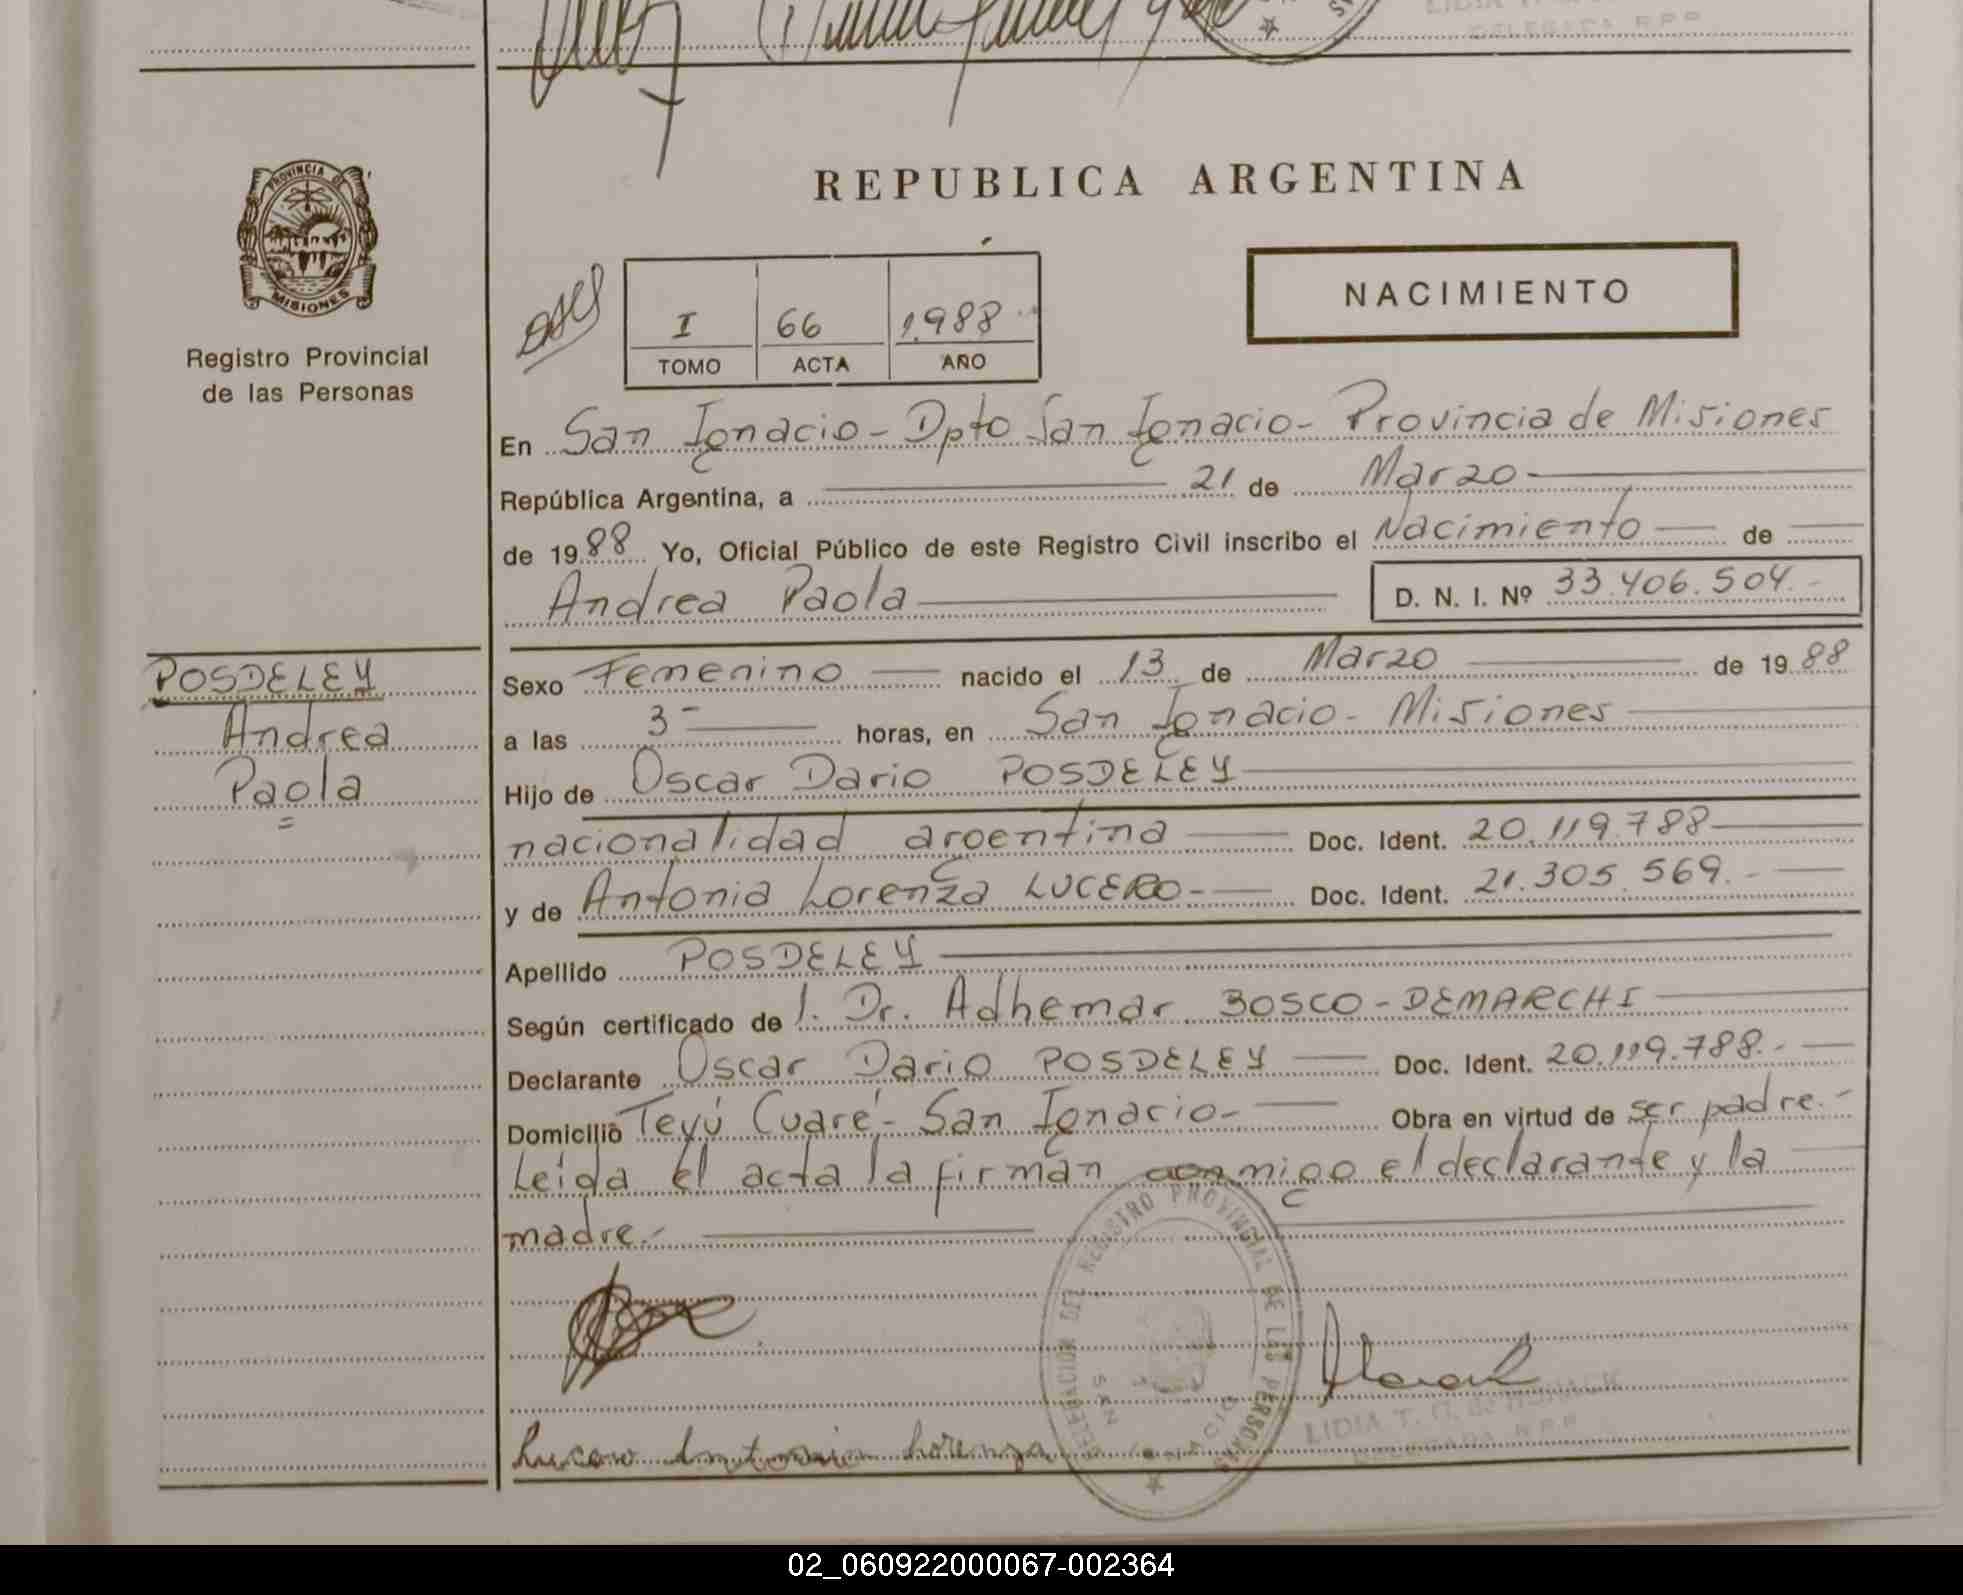 DELEGADA R.P.P.
PROVINCIA DE
MISIONES
Registro Provincial
de las Personas
REPUBLICA ARGENTINA
NACIMIENTO
I 66 1.988
TOMO ACTA AÑO
En San Ignacio - Dpto San Ignacio - Provincia de Misiones
República Argentina, a 21 de Marzo
de 1988 Yo, Oficial Público de este Registro Civil inscribo el Nacimiento de
Andrea Paola D. N. I. Nº 33.406.504.-
POSDELEY
Andrea
Paola
Sexo Femenino nacido el 13 de Marzo de 1988
a las 3- horas, en San Ignacio - Misiones
Hijo de Oscar Dario POSDELEY
nacionalidad argentina Doc. Ident. 20.119.788
y de Antonia Lorenza LUCERO- Doc. Ident. 21.305.569.-
Apellido POSDELEY
Según certificado de 1. Dr. Adhemar BOSCO-DEMARCHI
Declarante Oscar Dario POSDELEY Doc. Ident. 20.119.788.-
Domicilio Teyú Cuaré - San Ignacio- Obra en virtud de ser padre.-
Leída el acta la firman conmigo el declarante y la
madre.-
DELEGACION DEL REGISTRO PROVINCIAL DE LAS PERSONAS
SAN IGNACIO
LIDIA T.
DELEGADA R.P.P.
Lucero Antonia Lorenza
02_060922000067-002364